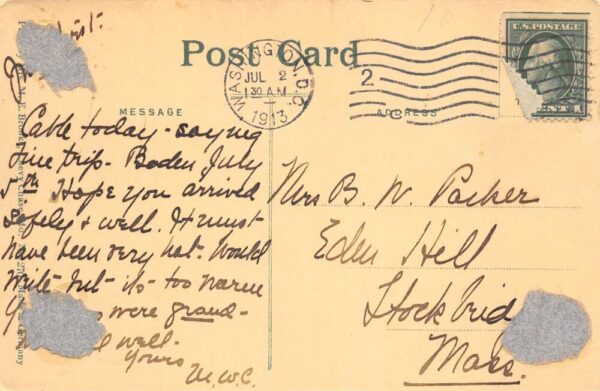 Post Card
WASHINGTON, D.C.
JUL 2
1 30 AM
1913
2
U.S. POSTAGE
MESSAGE
ADDRESS
Cable today - saying
fine trip - Baden July
5th Hope you arrived
safely & well. It must
have been very hot. Would
write but it's too warm
were grand -
well.
Yours
M.W.C.
Mrs B. W. Parker
Eden Hill
Stockbrid
Mass.